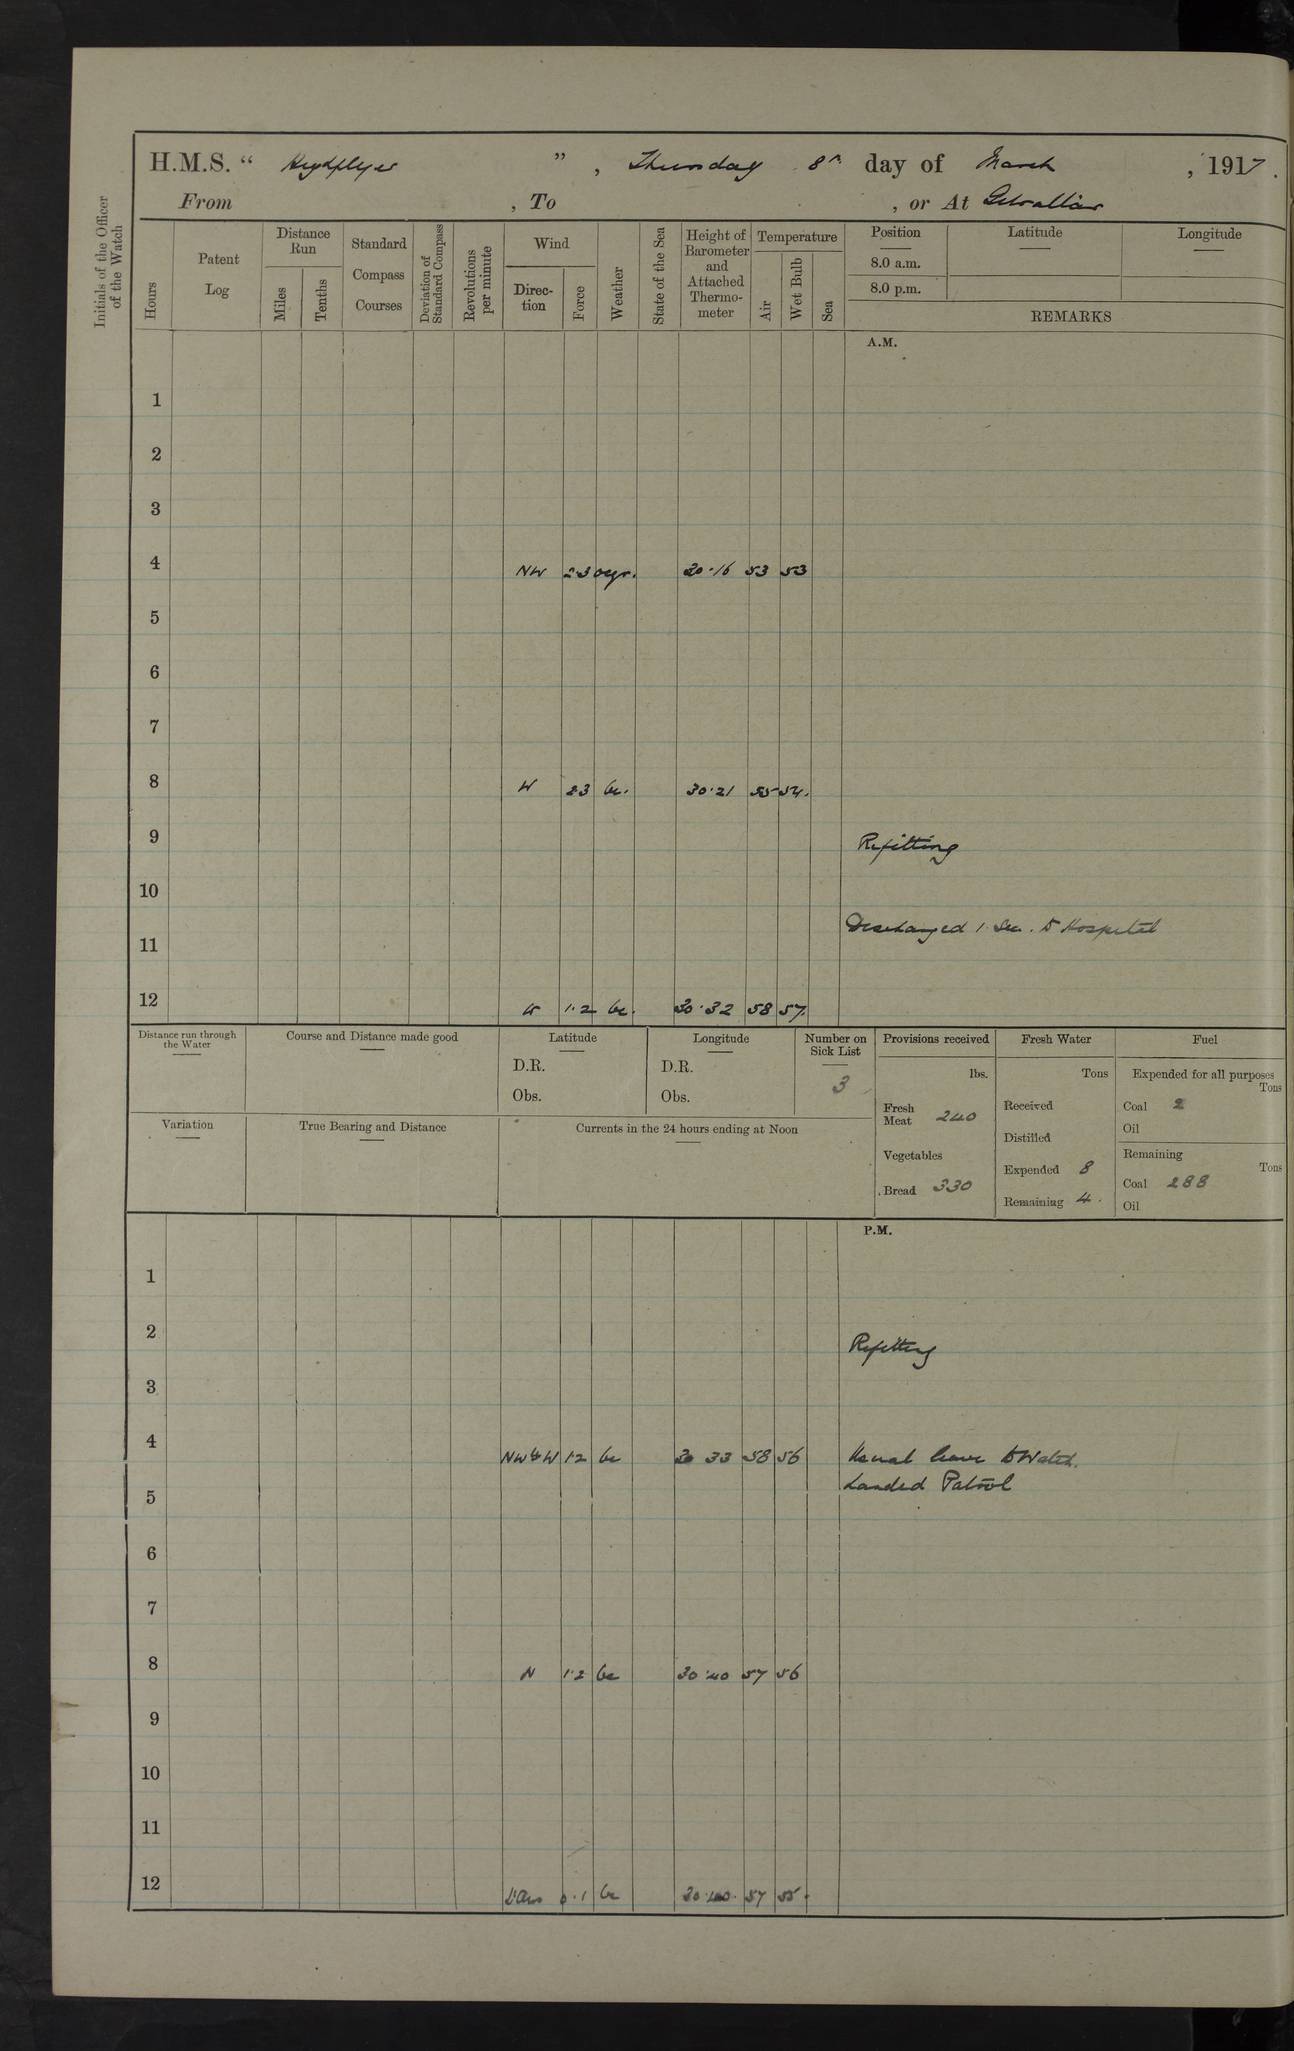 H.M.S. “ Highflyer ” , Thursday 8th day of March , 1917.
From , To , or At Gibraltar
Initials of the Officer of the Watch
Hours
Patent Log
Distance Run
Miles
Tenths
Standard Compass Courses
Deviation of Standard Compass
Revolutions per minute
Wind
Direction
Force
Weather
State of the Sea
Height of Barometer and Attached Thermometer
Temperature
Air
Wet Bulb
Sea
Position Latitude Longitude
8.0 a.m.
8.0 p.m.
REMARKS
A.M.
1
2
3
4 NW 2.3 30.16 53 53
5
6
7
8 W 2.3 bc. 30.21 55 54.
9 Refitting
10
Discharged 1 Sea. to Hospital
11
12 W 1.2 bc. 30.32 58 57.
Distance run through the Water
Course and Distance made good
Latitude
D.R.
Obs.
Longitude
D.R.
Obs.
Number on Sick List
3
Provisions received
lbs.
Fresh Meat 240
Vegetables
Bread 330
Fresh Water
Tons
Received
Distilled
Expended 8
Remaining 4.
Fuel
Expended for all purposes
Tons
Coal 2
Oil
Remaining
Tons
Coal 288
Oil
Variation
True Bearing and Distance
Currents in the 24 hours ending at Noon
P.M.
1
2 Refitting
3
4 NW by W 1.2 bc 30 33 58 56 Usual leave to Watch.
Landed Patrol
5
6
7
8 N 1.2 bc 30.40 57 56
9
10
11
12 0.1 bc 30.40. 57 55.